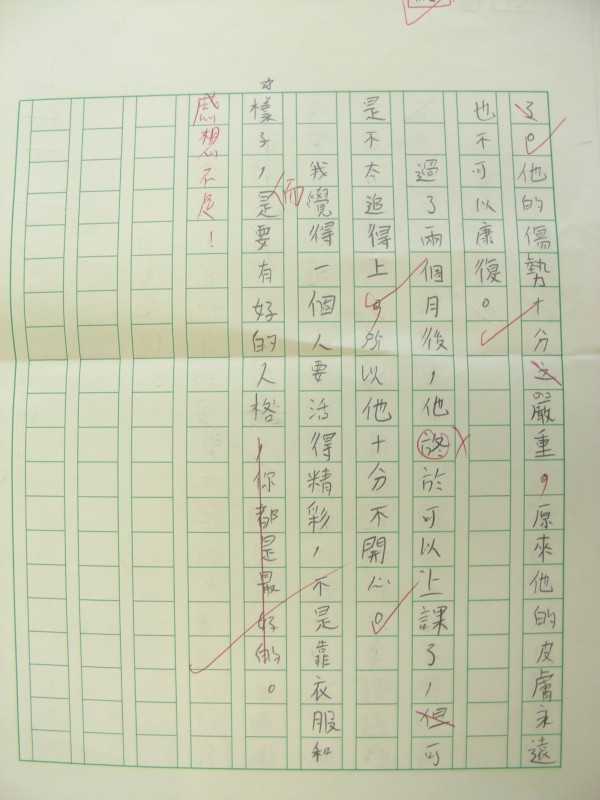 了。他的傷勢十分之嚴重，原來他的皮膚永遠
也不可以康復。
過了兩個月後，他終於可以上課了，但可
是不太追得上。所以他十分不開心。
我覺得一個人要活得精彩，不是靠衣服和
樣子，是要有好的人格，你都是最好的。
而
感想不足！